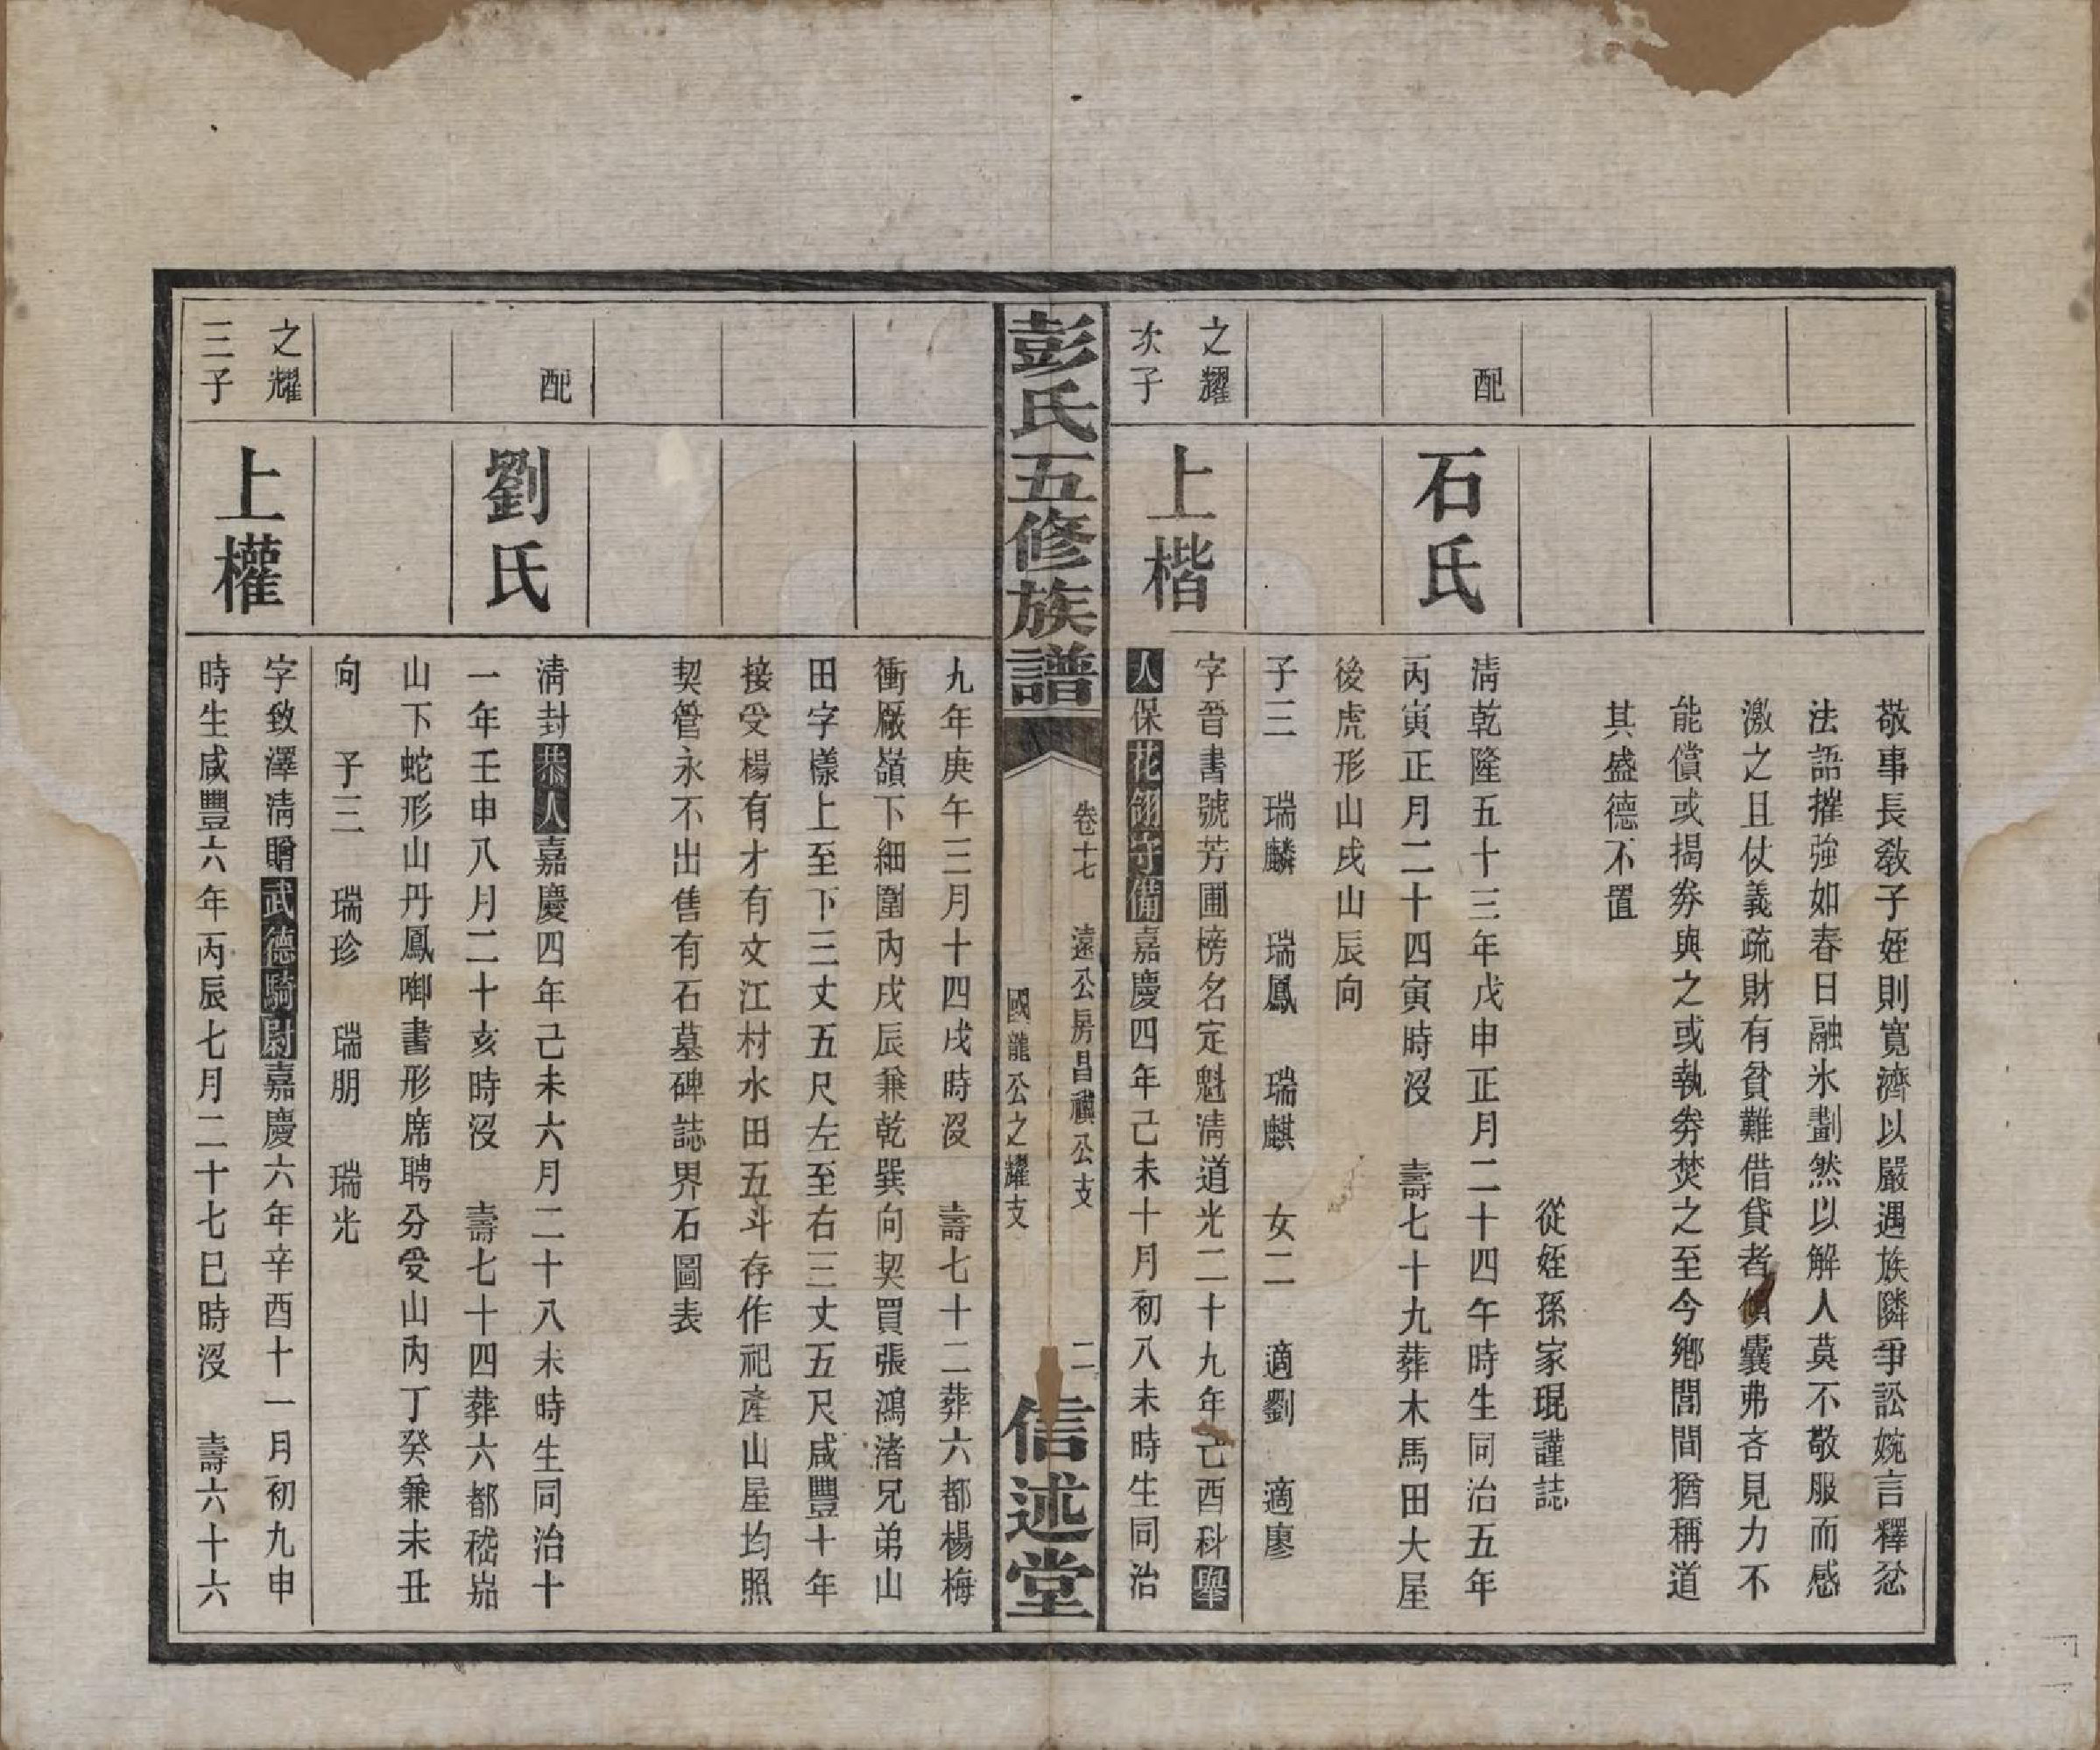 敬事長敎子姪則寬濟以嚴遇族隣爭訟婉言釋忿
法語摧強如春日融氷劃然以解人莫不敬服而感
激之且仗義疏財有貧難借貸者傾囊弗吝見力不
能償或揭券與之或執券焚之至今鄉閭間猶稱道
其盛德不置
從姪孫家琨謹誌
配
石氏
清乾隆五十三年戊申正月二十四午時生同治五年
丙寅正月二十四寅時沒 壽七十九葬木馬田大屋
後虎形山戌山辰向
子三 瑞麟 瑞鳳 瑞麒 女二 適劉 適廖
之耀
次子
上楷
字晉書號芳圃榜名定魁清道光二十九年己酉科舉
人保花翎守備嘉慶四年己未十月初八未時生同治
彭氏五修族譜
卷十七 遠公房昌禩公支
國龍公之耀支
二
信述堂
九年庚午三月十四戌時沒 壽七十二葬六都楊梅
衝厰嶺下細圍內戌辰兼乾巽向契買張鴻渚兄弟山
田字樣上至下三丈五尺左至右三丈五尺咸豐十年
接受楊有才有文江村水田五斗存作祀產山屋均照
契管永不出售有石墓碑誌界石圖表
配
劉氏
清封恭人嘉慶四年己未六月二十八未時生同治十
一年壬申八月二十亥時沒 壽七十四葬六都嵇岽
山下蛇形山丹鳳啣書形席聘分受山內丁癸兼未丑
向 子三 瑞珍 瑞朋 瑞光
之耀
三子
上權
字致澤清贈武德騎尉嘉慶六年辛酉十一月初九申
時生咸豐六年丙辰七月二十七巳時沒 壽六十六